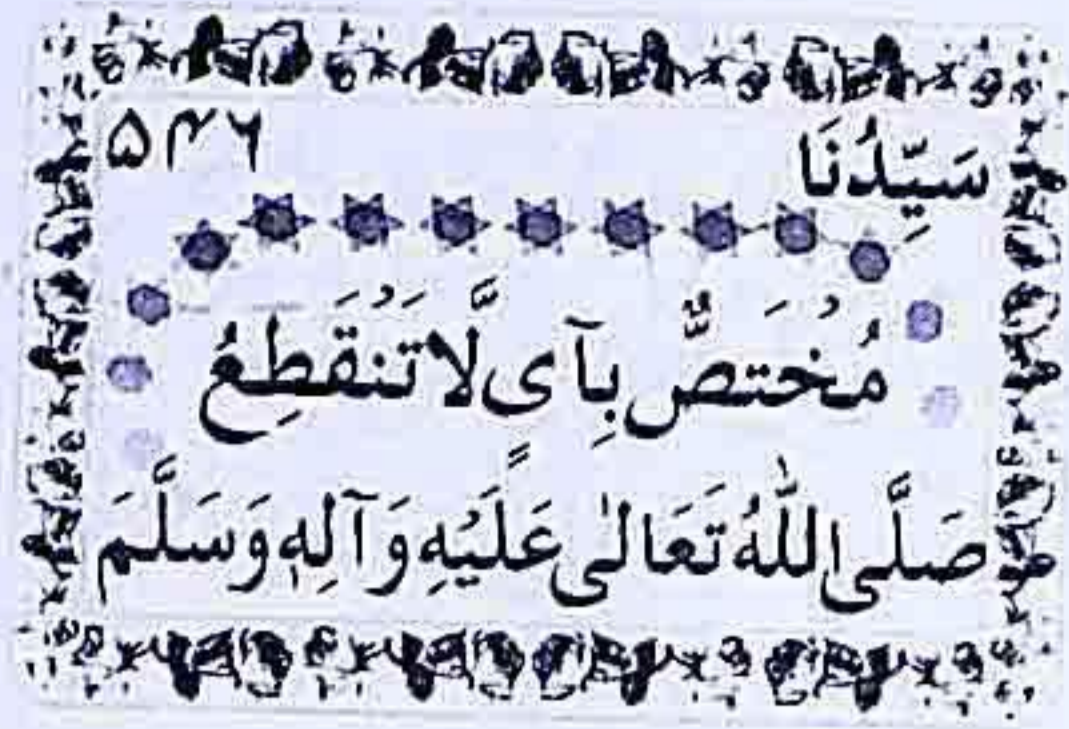 سَيِّدُنَا ۵۴۶
مُخْتَصٌّ بِآیٍ لَّا تَنْقَطِعُ
صَلَّى اللّٰهُ تَعَالٰى عَلَيْهِ وَآلِهٖ وَسَلَّمَ